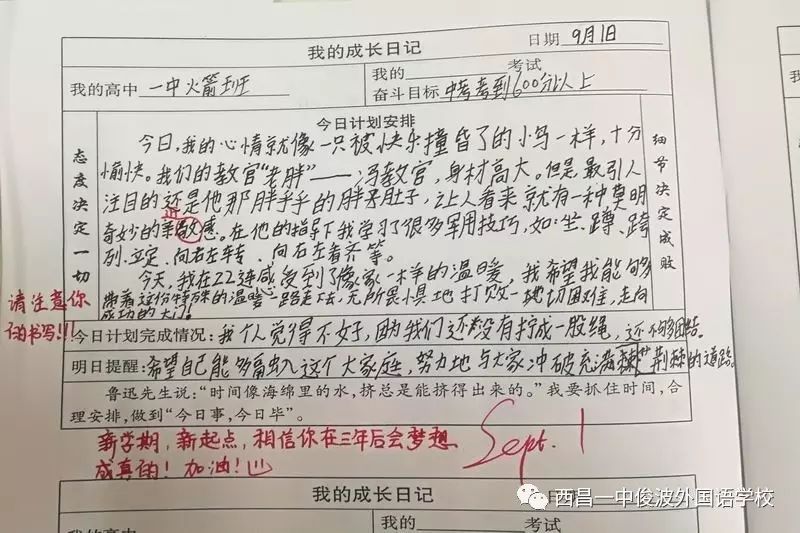 我的成长日记
日期 9月1日
我的高中 一中火箭班
我的 考试
奋斗目标 中考考到600分以上
态度决定一切
今日计划安排
细节决定成败
今日,我的心情就像一只被快乐撞昏了的小鸟一样,十分
愉快。我们的教官“老胖”——冯教官,身材高大。但是最引人
注目的还是他那胖乎乎的胖肚子,让人看来就有一种莫明
奇妙的亲近感。在他的指导下我学习了很多军用技巧,如:坐、蹲、跨
列、立定、向右左转、向右左看齐等。
今天,我在22连感受到了像家一样的温暖,我希望我能够
带着这份特殊的温暖一路走下去,无所畏惧地打败一切困难,走向
成功的大门。
请注意你
的书写!!!
今日计划完成情况:我个人觉得不好,因为我们还没有拧成一股绳,还不够团结。
明日提醒:希望自己能够融入这个大家庭,努力地与大家冲破充满荆棘的道路。
鲁迅先生说:“时间像海绵里的水,挤总是能挤得出来的。”我要抓住时间,合
理安排,做到“今日事,今日毕”。
新学期,新起点,相信你在三年后会梦想
成真的!加油!
Sept. 1
我的成长日记
日期
我的高中
我的 考试
西昌一中俊波外国语学校